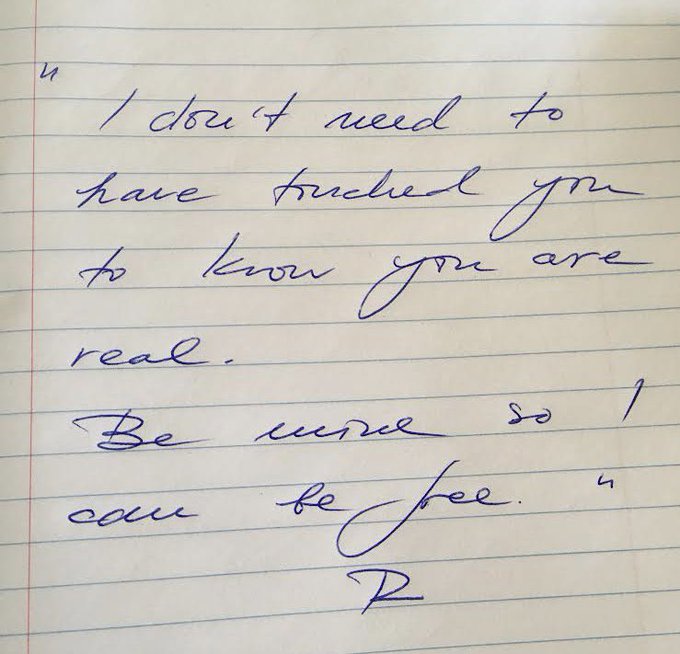 "
I don't need to
have touched you
to know you are
real.
Be mine so I
can be free. "
R